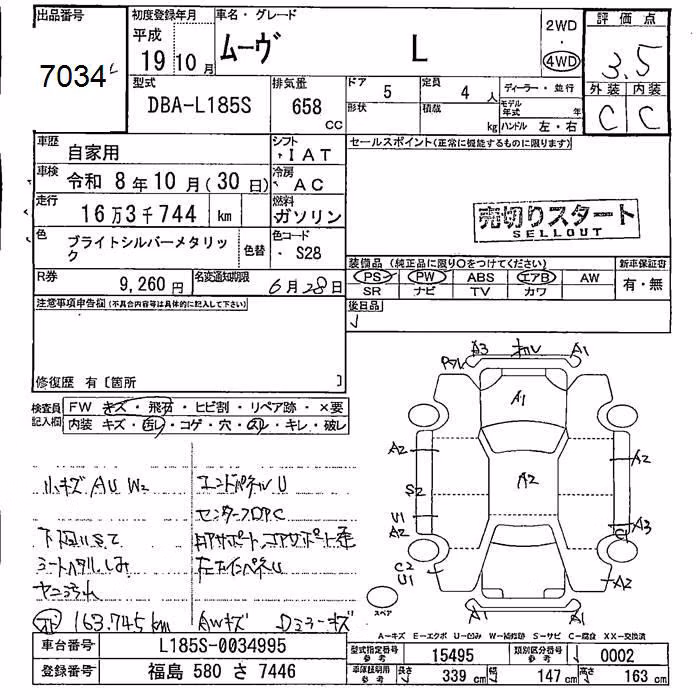 出品番号
7034
初度登録年月
平成
19年10月
車名・グレード
ムーヴ L
2WD
・
4WD
評価点
3.5
外装 内装
C C
型式
DBA-L185S
排気量
658
CC
ドア
5
定員
4人
形状
積載
kg
ディーラー・並行
モデル年式 年
ハンドル 左・右
車歴
自家用
シフト
IAT
車検
令和 8年10月(30日)
冷房
AC
走行
16万3千744 km
燃料
ガソリン
色
ブライトシルバーメタリック
色替
色コード
S28
R券
9,260円
名変通知期限
6月28日
セールスポイント(正常に機能するものに限ります)
売切りスタート
SELLOUT
装備品(純正品に限り○をつけてください)
新車保証書
PS PW ABS エアB AW
有・無
SR ナビ TV カワ
後日品
注意事項申告欄(不具合内容等は具体的に記入して下さい)
修復歴 有〔箇所 〕
検査員記入欄
FW キズ・飛石・ヒビ割・リペア跡・×要
内装 キズ・汚レ・コゲ・穴・スレ・キレ・破レ
小キズ AU W2
エンドパネルU
センターフロアC
下回りサビ
シートヘタリ,しみ
ヤニ汚れ
163,745km
AWキズ
Dミラーキズ
A3 A1
A1
A2 A2
A2
S2
U1
A2
A3
C1
C2
U1
A2
A1 A1
スペア
A-キズ E-エクボ U-凹み W-補修跡 S-サビ C-腐食 XX-交換済
車台番号
L185S-0034995
登録番号
福島 580 さ 7446
型式指定番号
参考
15495
類別区分番号
参考
0002
車庫証明用
参考
長さ
339 cm
幅
147 cm
高さ
163 cm